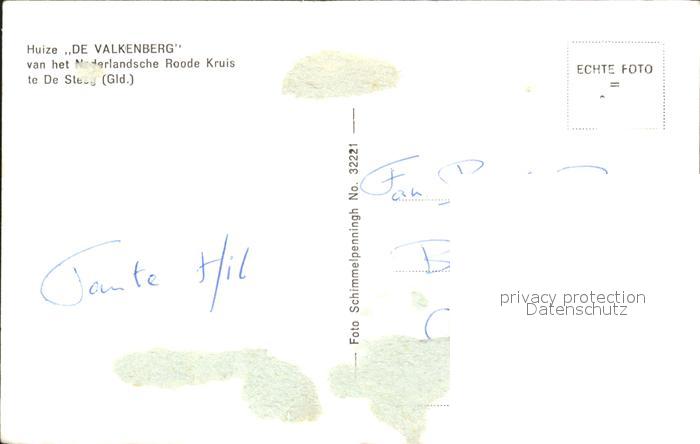 Huize „DE VALKENBERG"
van het Nederlandsche Roode Kruis
te De Steeg (Gld.)
ECHTE FOTO
=
Foto Schimmelpenningh No. 32221
Fam
Tante Hil
B
privacy protection
Datenschutz